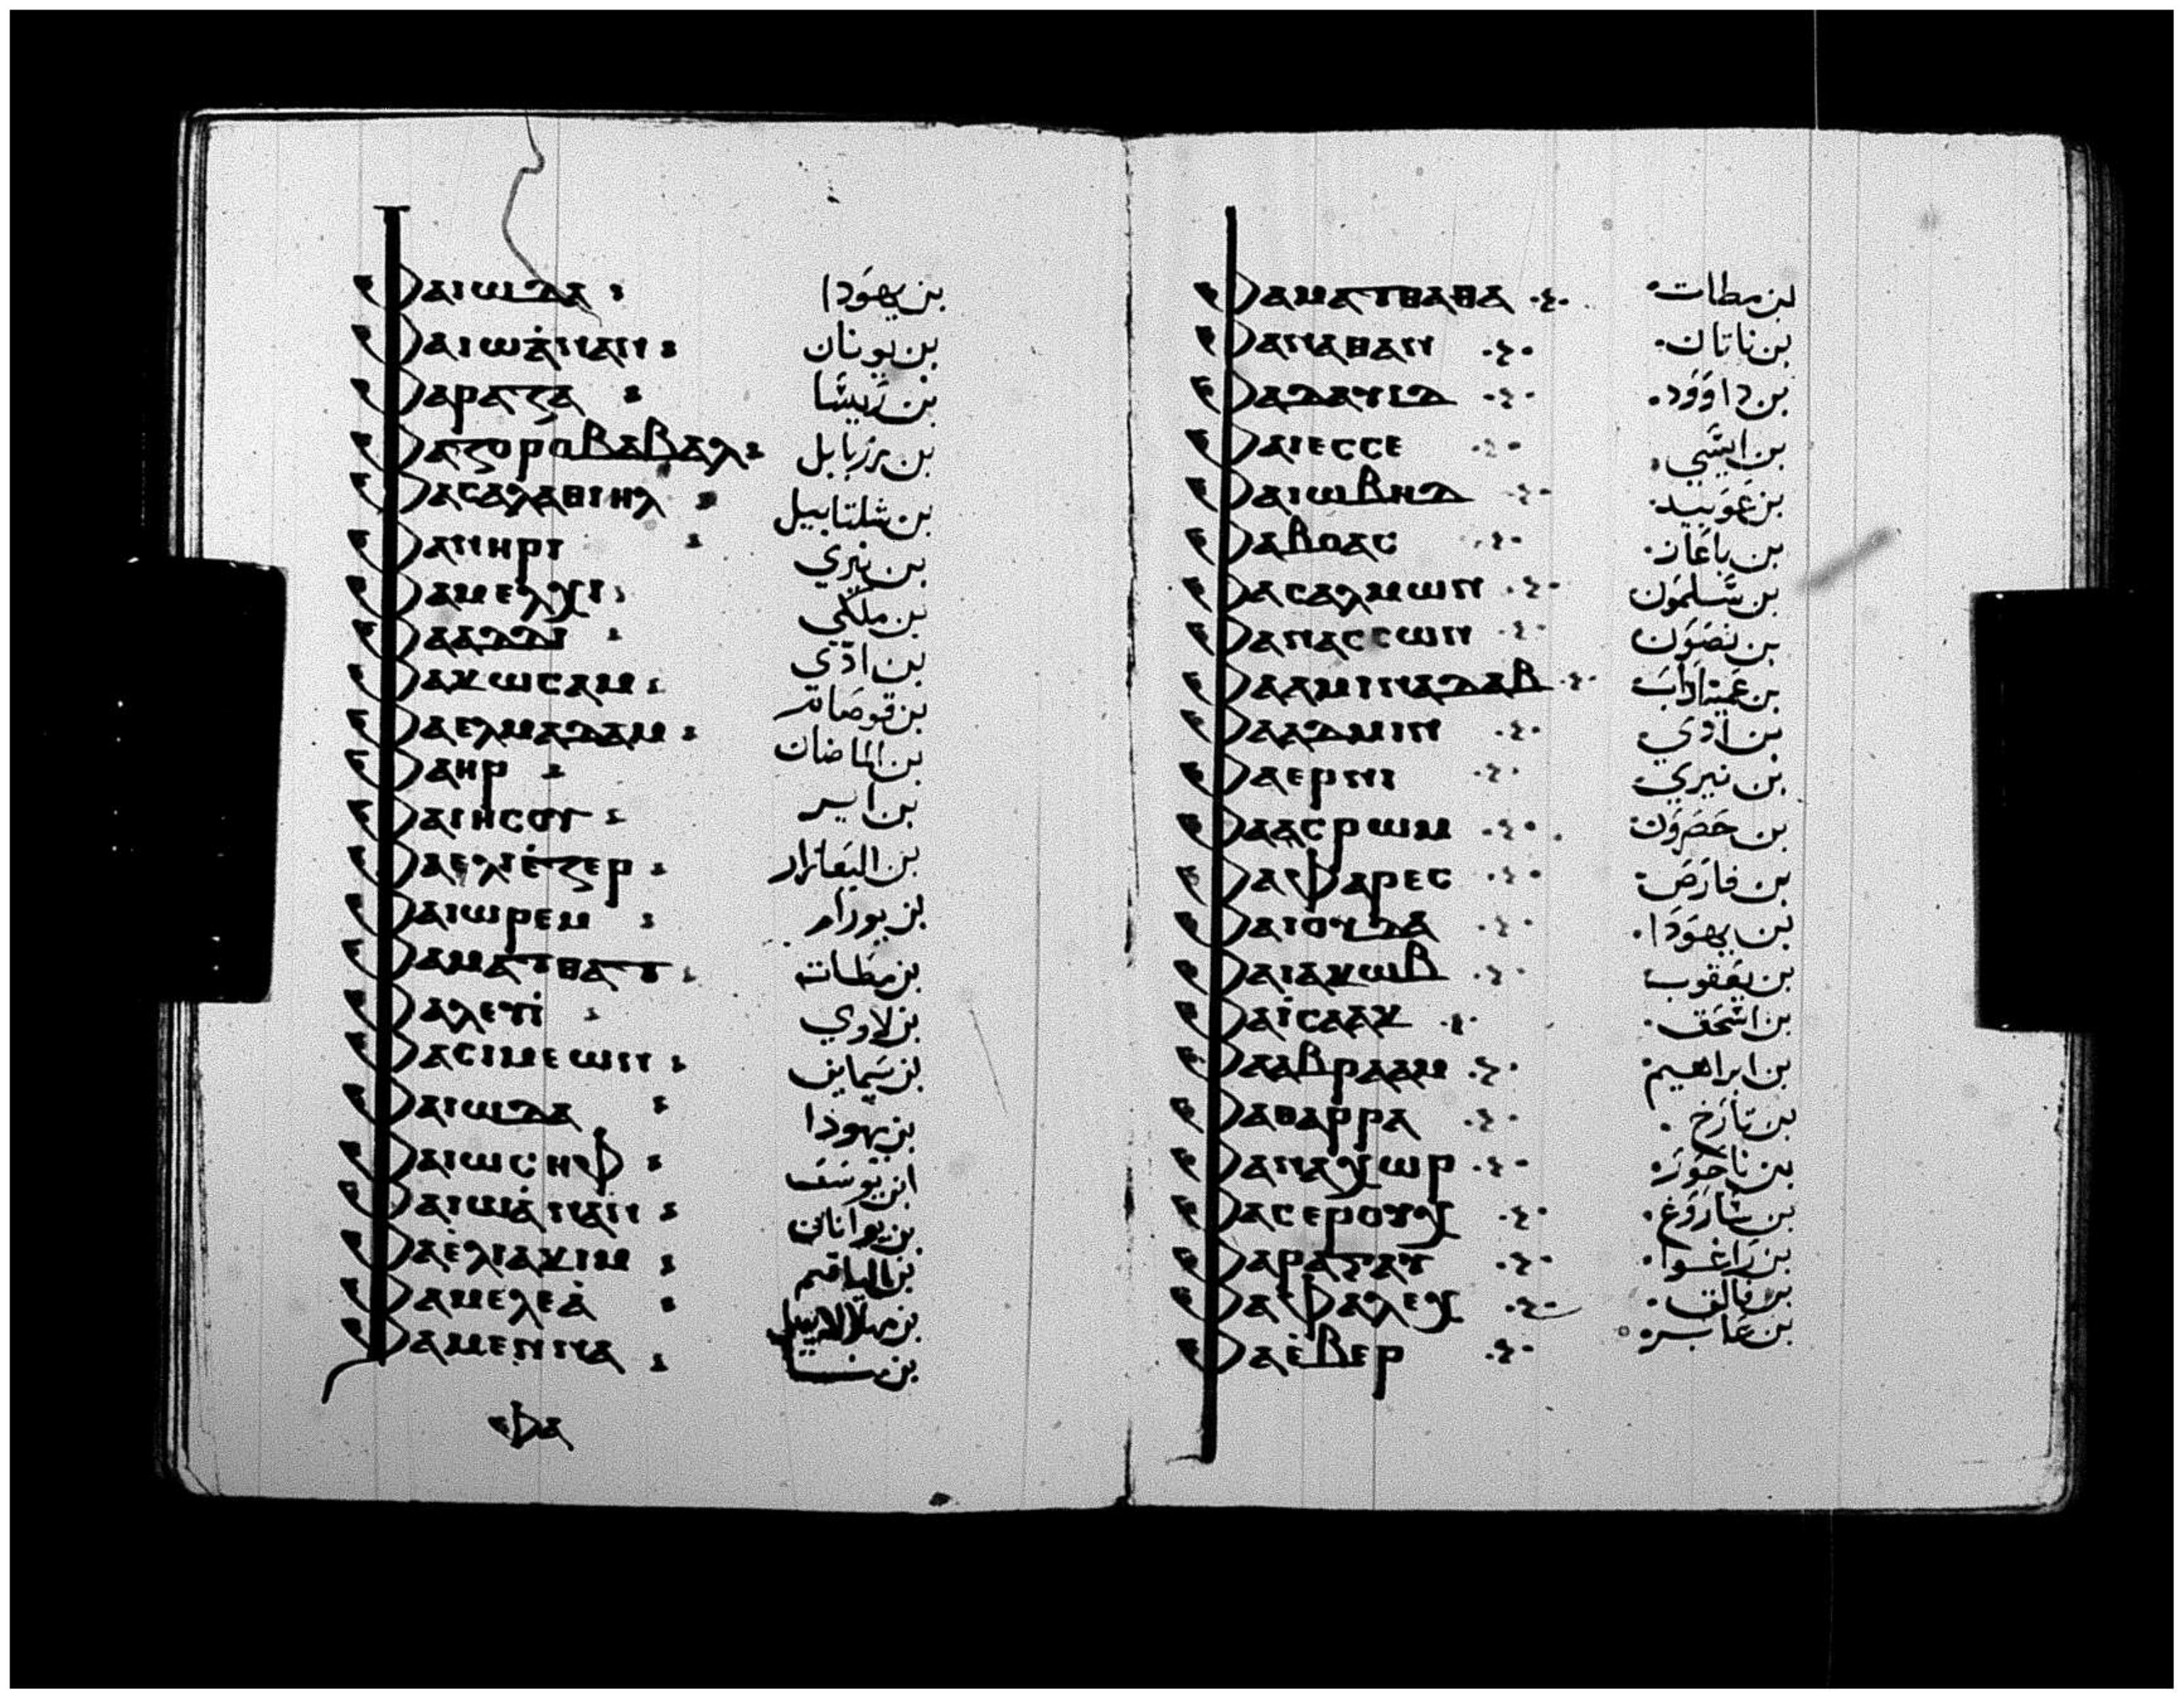 ⲫⲁⲓⲱⲇⲁ بن يهَودا
ⲫⲁⲓⲱⲁ̀ⲛⲁⲛ بن يونان
ⲫⲁⲣⲁⲍⲁ بن رَيسَّا
ⲫⲁⲍⲟⲣⲟⲃⲁⲃⲁⲗ بن زربابل
ⲫⲁⲥⲁⲗⲁⲑⲓⲏⲗ بن شلتاييل
ⲫⲁⲛⲏⲣⲓ بن نيري
ⲫⲁⲙⲉⲗⲭⲓ بن ملكي
ⲫⲁⲁⲇⲇⲓ بن ادّي
ⲫⲁⲕⲱⲥⲁⲙ بن قوصَام
ⲫⲁⲉⲗⲙⲁⲇⲁⲙ بن الماضان
ⲫⲁⲏⲣ بن ايـر
ⲫⲁⲓⲏⲥⲟⲩ
ⲫⲁⲉⲗⲓⲉ̀ⲍⲉⲣ بن اليعَازار
ⲫⲁⲓⲱⲣⲉⲙ بن يورام
ⲫⲁⲙⲁⲧⲑⲁⲧ بن مطات
ⲫⲁⲗⲉⲩⲓ̀ بن لاوي
ⲫⲁⲥⲓⲙⲉⲱⲛ بن سَماين
ⲫⲁⲓⲱⲇⲁ بن يهوذا
ⲫⲁⲓⲱⲥⲏⲫ ابن يوسَف
ⲫⲁⲓⲱⲁ̀ⲛⲁⲛ بن يوانان
ⲫⲁⲉ̀ⲗⲓⲁⲕⲓⲙ بن الياقيم
ⲫⲁⲙⲉⲗⲉⲁ̀
ⲫⲁⲙⲉⲛⲛⲁ بن منـا
ⲫⲁ
ⲫⲁⲙⲁⲧⲑⲁⲑⲁ بن مطات
ⲫⲁⲛⲁⲑⲁⲛ بن ناتان
ⲫⲁⲇⲁⲩⲓⲇ بن داوَود
ⲫⲁⲓⲉⲥⲥⲉ بن ايسَّي
ⲫⲁⲓⲱⲃⲏⲇ بن عَوبيد
ⲫⲁⲃⲟⲁⲥ بن باعَاز
ⲫⲁⲥⲁⲗⲙⲱⲛ بن سَـلمَون
ⲫⲁⲛⲁⲥⲥⲱⲛ بن نصَوَن
ⲫⲁⲁⲙⲓⲛⲁⲇⲁⲃ بن عَميناداب
ⲫⲁⲁⲇⲙⲓⲛ بن ادي
ⲫⲁⲉⲣⲛⲓ بن نيري
ⲫⲁⲁⲥⲣⲱⲙ بن حَصَروَن
ⲫⲁⲫⲁⲣⲉⲥ بن فارَصَ
ⲫⲁⲓⲟⲩⲇⲁ بن يهوَدَا
ⲫⲁⲓⲁⲕⲱⲃ بن يعَقوب
ⲫⲁⲓ̀ⲥⲁⲁⲕ بن اسَّحَق
ⲫⲁⲁⲃⲣⲁⲁⲙ بن ابراهيم
ⲫⲁⲑⲁⲣⲣⲁ بن تارَخ
ⲫⲁⲛⲁⲭⲱⲣ بن ناحَور
ⲫⲁⲥⲉⲣⲟⲩⲭ بن سَّارَوغ
ⲫⲁⲣⲁⲅⲁⲩ بن رَاغـوا
ⲫⲁⲫⲁⲗⲉⲭ بن فالق
ⲫⲁⲉ̀ⲃⲉⲣ بن عَابـر